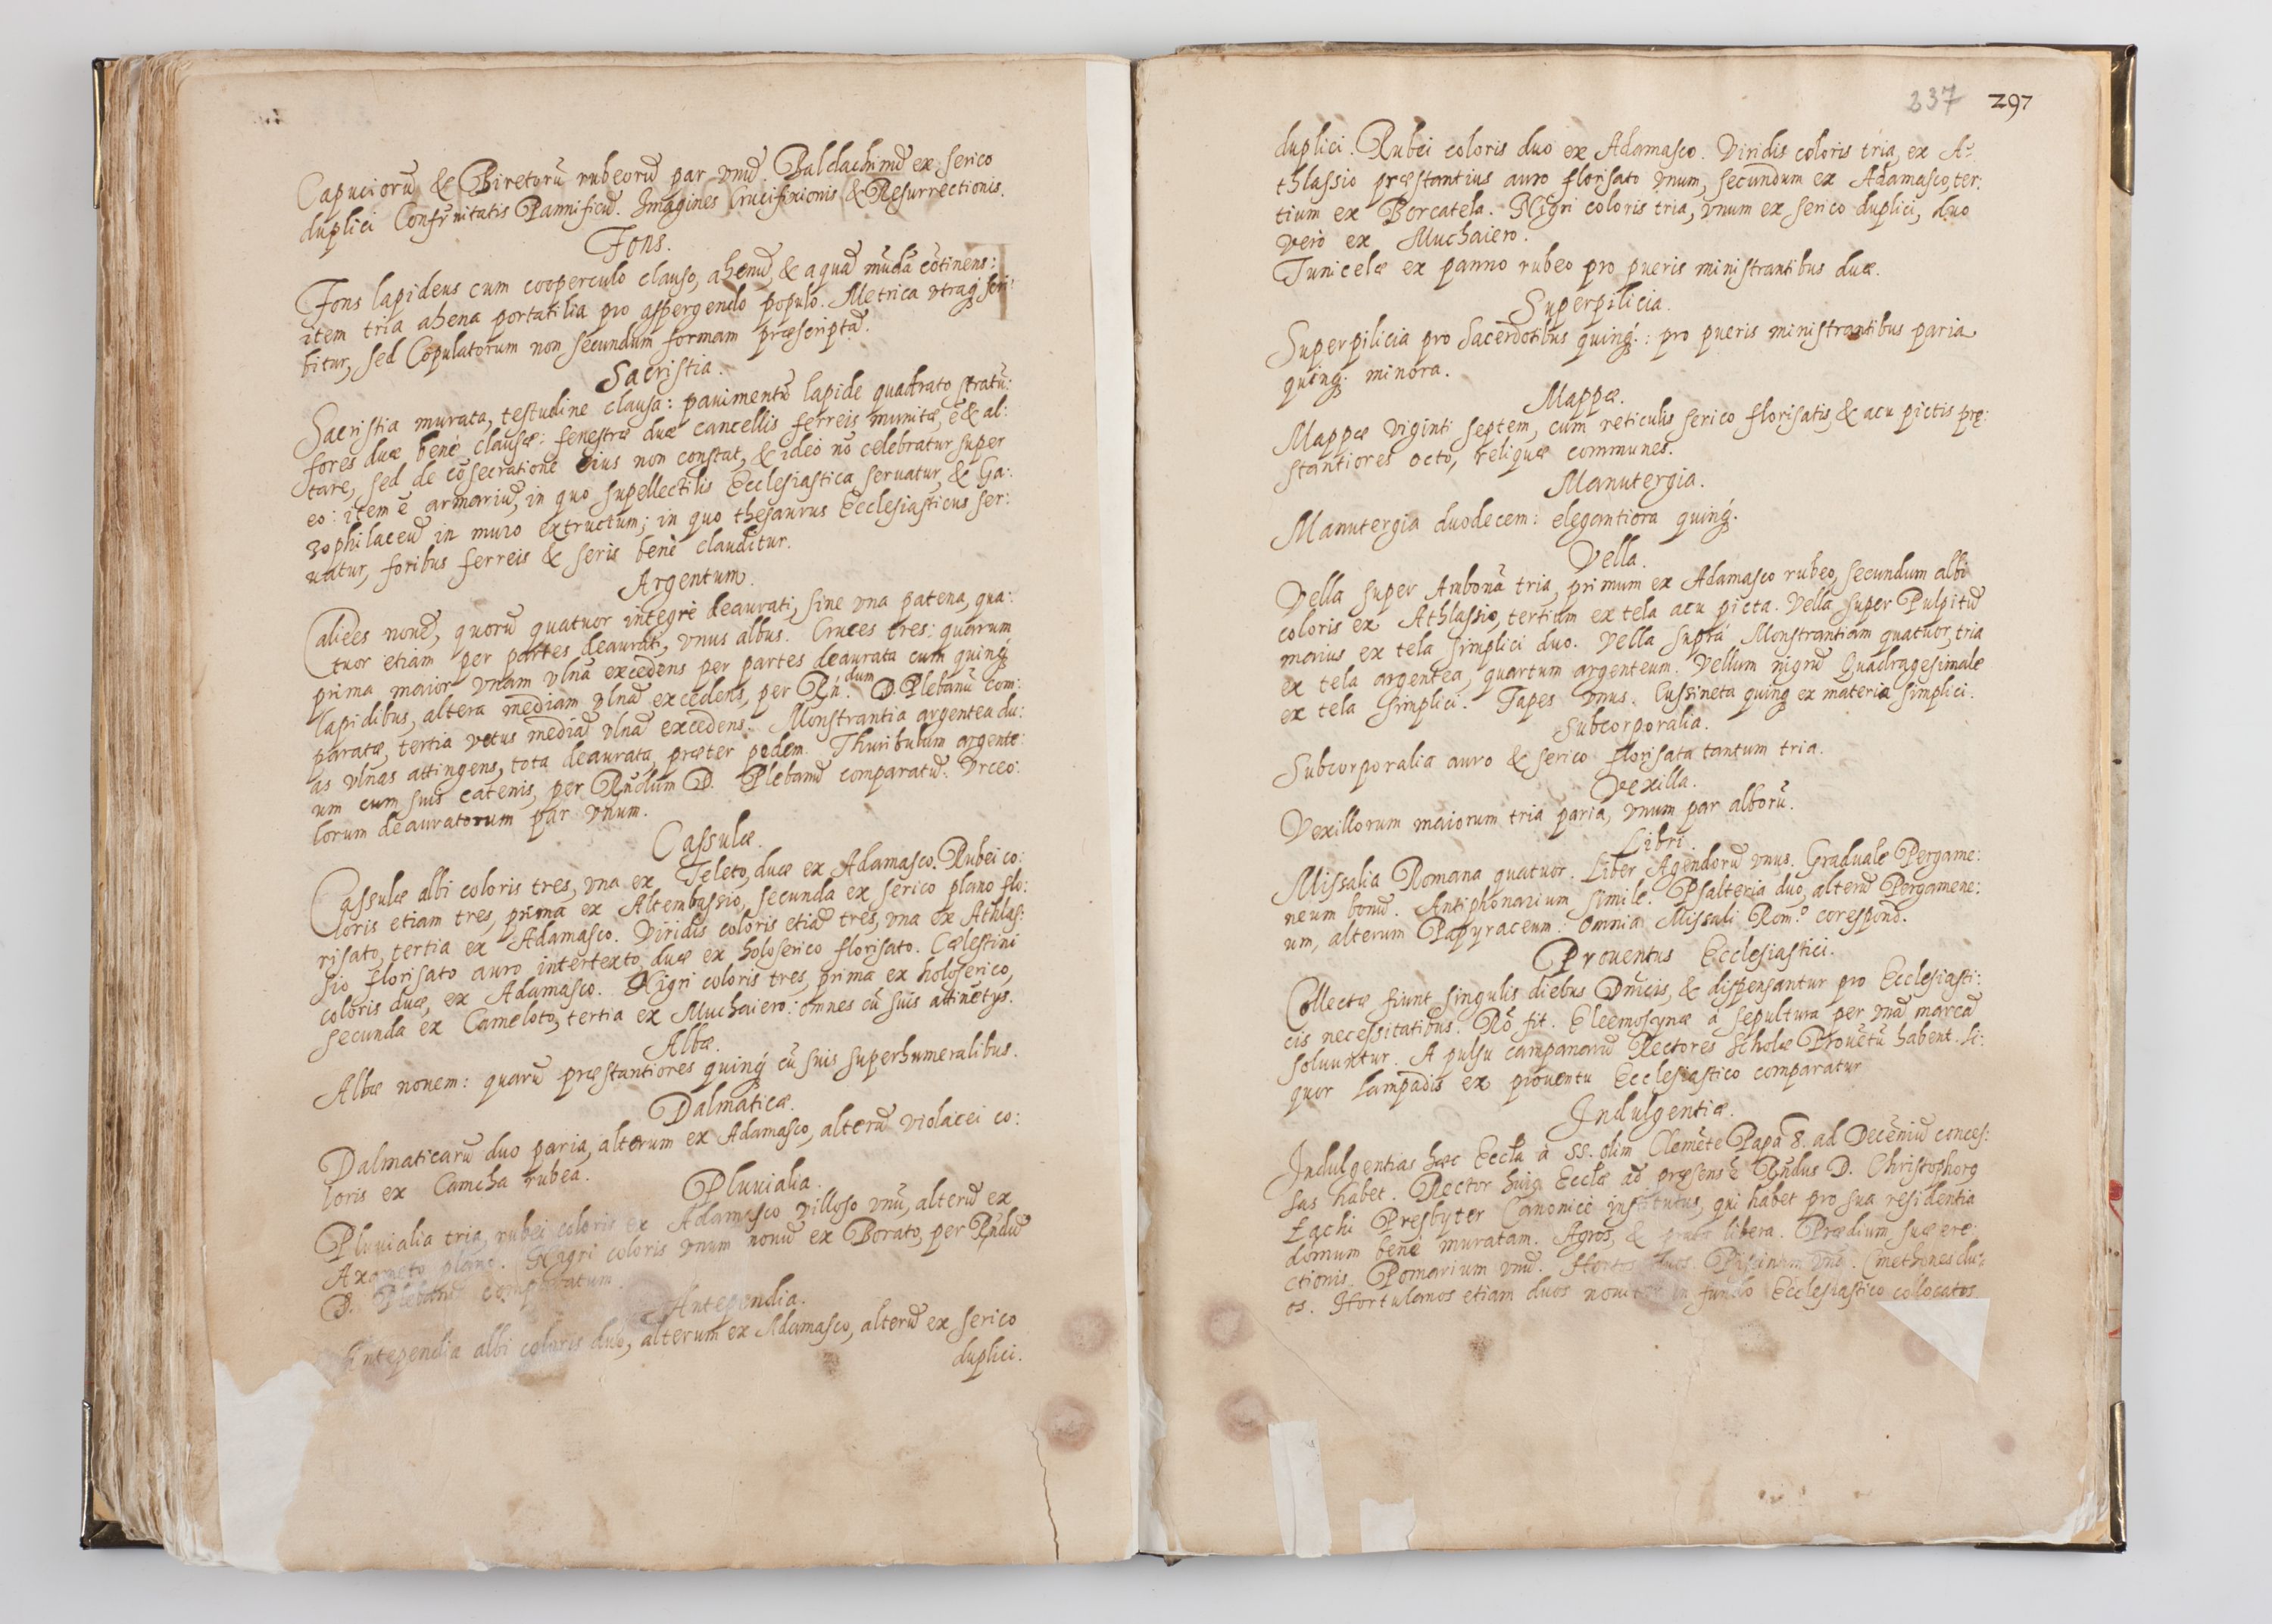 Capuciorū & Biretorū rubeorū par vnū. Baldachinū ex serico
duplici Confr̄nitatis Pannificū. Imagines Crucifixionis & Resurrectionis.
Fons.
Fons lapideus cum cooperculo clauso, ahenū, & aquā mūdā cōtinens:
item tria ahena portatilia pro aspergendo populo. Metrica vtraq; scri:
bitur, sed Copulatorum non secundum formam præscriptā.
Sacristia.
Sacristia murata, testudine clausa: pauimentū lapide quadrato stratū:
fores duæ benè clausæ: fenestræ duæ cancellis ferreis munitæ, ē & al:
tare, sed de cōsecratione eius non constat, & ideò nō celebratur super
eo: item ē armariū, in quo supellectilis Ecclesiastica seruatur, & Ga:
zophilaceū in muro extructum; in quo thesaurus Ecclesiasticus ser:
uatur, foribus ferreis & seris benè clauditur.
Argentum.
Calices nouē, quorū quatuor integrè deaurati, sine vna patena, qua:
tuor etiam per partes deaurati, vnus albus. Cruces tres: quarum
prima maior vnam vlnā excedens per partes deaurata cum quinq;
lapidibus, altera mediam vlnā excedens, per Rń.dum D. Plebanū com:
paratæ, tertia vetus mediā vlnā excedens. Monstrantia argentea du:
as vlnas attingens, tota deaurata, præter pedem. Thuribulum argente:
um cum suis catenis, per Rńdum D. Plebanū comparatū. Vrceo:
lorum deauratorum par vnum.
Cassulæ.
Cassulæ albi coloris tres, vna ex Teleto, duæ ex Adamasco. Rubei co:
loris etiam tres, prima ex Altembassio, secunda ex serico plano flo:
risato, tertia ex Adamasco. Viridis coloris etiā tres, vna ex Athlas:
sio florisato auro intertexto, duæ ex holoserico florisato. Cælestini
coloris duæ, ex Adamasco. Nigri coloris tres, prima ex holoserico,
secunda ex Cameloto, tertia ex Muchaiero: omnes cū suis attinētys.
Albæ.
Albæ nouem: quarū præstantiores quinq; cū suis superhumeralibus.
Dalmaticæ.
Dalmaticarū duo paria, alterum ex Adamasco, alterū violacei co:
loris ex Camcha rubea.
Pluuialia.
Pluuialia tria, rubei coloris ex Adamasco villoso vnū, alterū ex
Axameto plano. Nigri coloris vnum nouū ex Borato, per Rńdū
D. Plebanū comparatum.
Antependia.
Antependia albi coloris duo, alterum ex Adamasco, alterū ex serico
duplici.
237 297
duplici. Rubei coloris duo ex Adamasco. Viridis coloris tria, ex A:
thlassio præstantius auro florisato vnum, secundum ex Adamasco, ter:
tium ex Borcatela. Nigri coloris tria, vnum ex serico duplici, duo
verò ex Muchaiero.
Tunicelæ ex panno rubeo pro pueris ministrantibus duæ.
Superpilicia.
Superpilicia pro Sacerdotibus quinq;: pro pueris ministrantibus paria
quinq; minora.
Mappæ.
Mappæ viginti septem, cum reticulis serico florisatis, & acu pictis pre:
stantiores octo, reliquæ communes.
Manutergia.
Manutergia duodecem: elegantiora quinq;.
Vella.
Vella super Ambonā tria, primum ex Adamasco rubeo, secundum albi
coloris ex Athlassio, tertium ex tela acu picta. Vella super Pulpitū
maius ex tela simplici duo. Vella suprà Monstrantiam quatuor, tria
ex tela argentea, quartum argenteum. Vellum nigrū Quadragesimale
ex tela simplici. Tapes vnus. Cussineta quinq; ex materia simplici.
Subcorporalia.
Subcorporalia auro & serico florisata tantum tria.
Vexilla.
Vexillorum maiorum tria paria, vnum par alborū.
Libri.
Missalia Romana quatuor. Liber Agendorū vnus. Graduale Pergame:
neum bonū. Antiphonarium simile. Psalteria duo, alterū Pergamene:
um, alterum Papyraceum. Omnia Missali Rom.º corespond.
Prouentus Ecclesiastici.
Collectæ fiunt singulis diebus Dńicis, & dispensantur pro Ecclesiasti:
cis necessitatibus. Rō fit. Eleemosynæ à sepultura per vnā marcā
soluuntur. A pulsu campanarū Rectores Scholæ Prouētū habent. Li:
quor Lampadis ex prouentu Ecclesiastico comparatur
Indulgentiæ.
Indulgentias hæc Eccl̄a à SS. olim Clemēte Papa 8. ad Decēniū conces:
sas habet. Rector huiq Eccl̄æ ad præsens ē Rńdus D. Christophorq
Łachi Presbyter Canonicè institutus, qui habet pro sua residentia
domum benè muratam. Agros, & prata libera. Prædium suæ ere:
ctionis. Pomarium vnū. Hortos duos. Piscinam vnā. Cmethones du:
os. Hortulanos etiam duos nouiter in fundo Ecclesiastico collocatos.